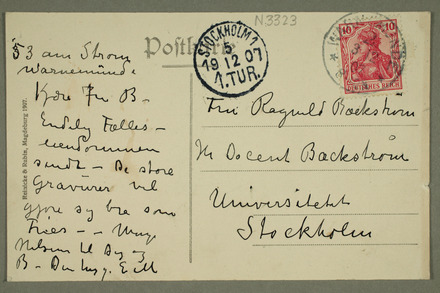 N3323
53 am Strom
Warnemünde
Postkarte
STOCKHOLM 1
5
19 12 07
1.TUR.
10 10
DEUTSCHES REICH
Heinicke & Rubin, Magdeburg 1907.
Kjære Fru B-
Endelig Fælles-
sendt - De store
Gravurer vil
gjøre sig bra som
Frises - - Mange
Hilsner til Dig og
B - Din hng. E M
Fru Ragnild Backstrøm
Docent Backstrøm
Universitetet
Stockholm